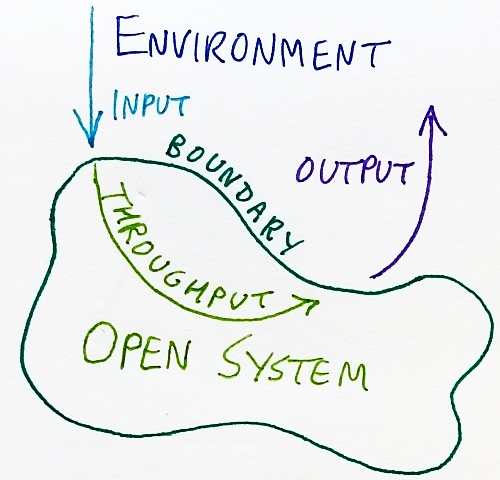 ENVIRONMENT
INPUT
BOUNDARY
OUTPUT
THROUGHPUT
OPEN SYSTEM